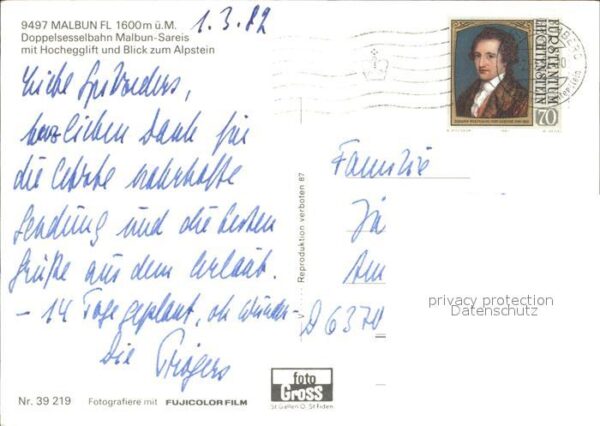 9497 MALBUN FL 1600 m ü.M.
Doppelsesselbahn Malbun-Sareis
mit Hochegglift und Blick zum Alpstein
1.3.82
FÜRSTENTUM
LIECHTENSTEIN
70
Liebe
herzlichen Dank für
die
Sendung und die besten
Grüße aus dem Urlaub.
- 14 Tage geplant, oh Wunder -
Die
Familie
Am
D 6370
V Reproduktion verboten 87
privacy protection
Datenschutz
foto
Gross
St. Gallen O. St. Fiden
Nr. 39 219 Fotografiere mit FUJICOLOR FILM